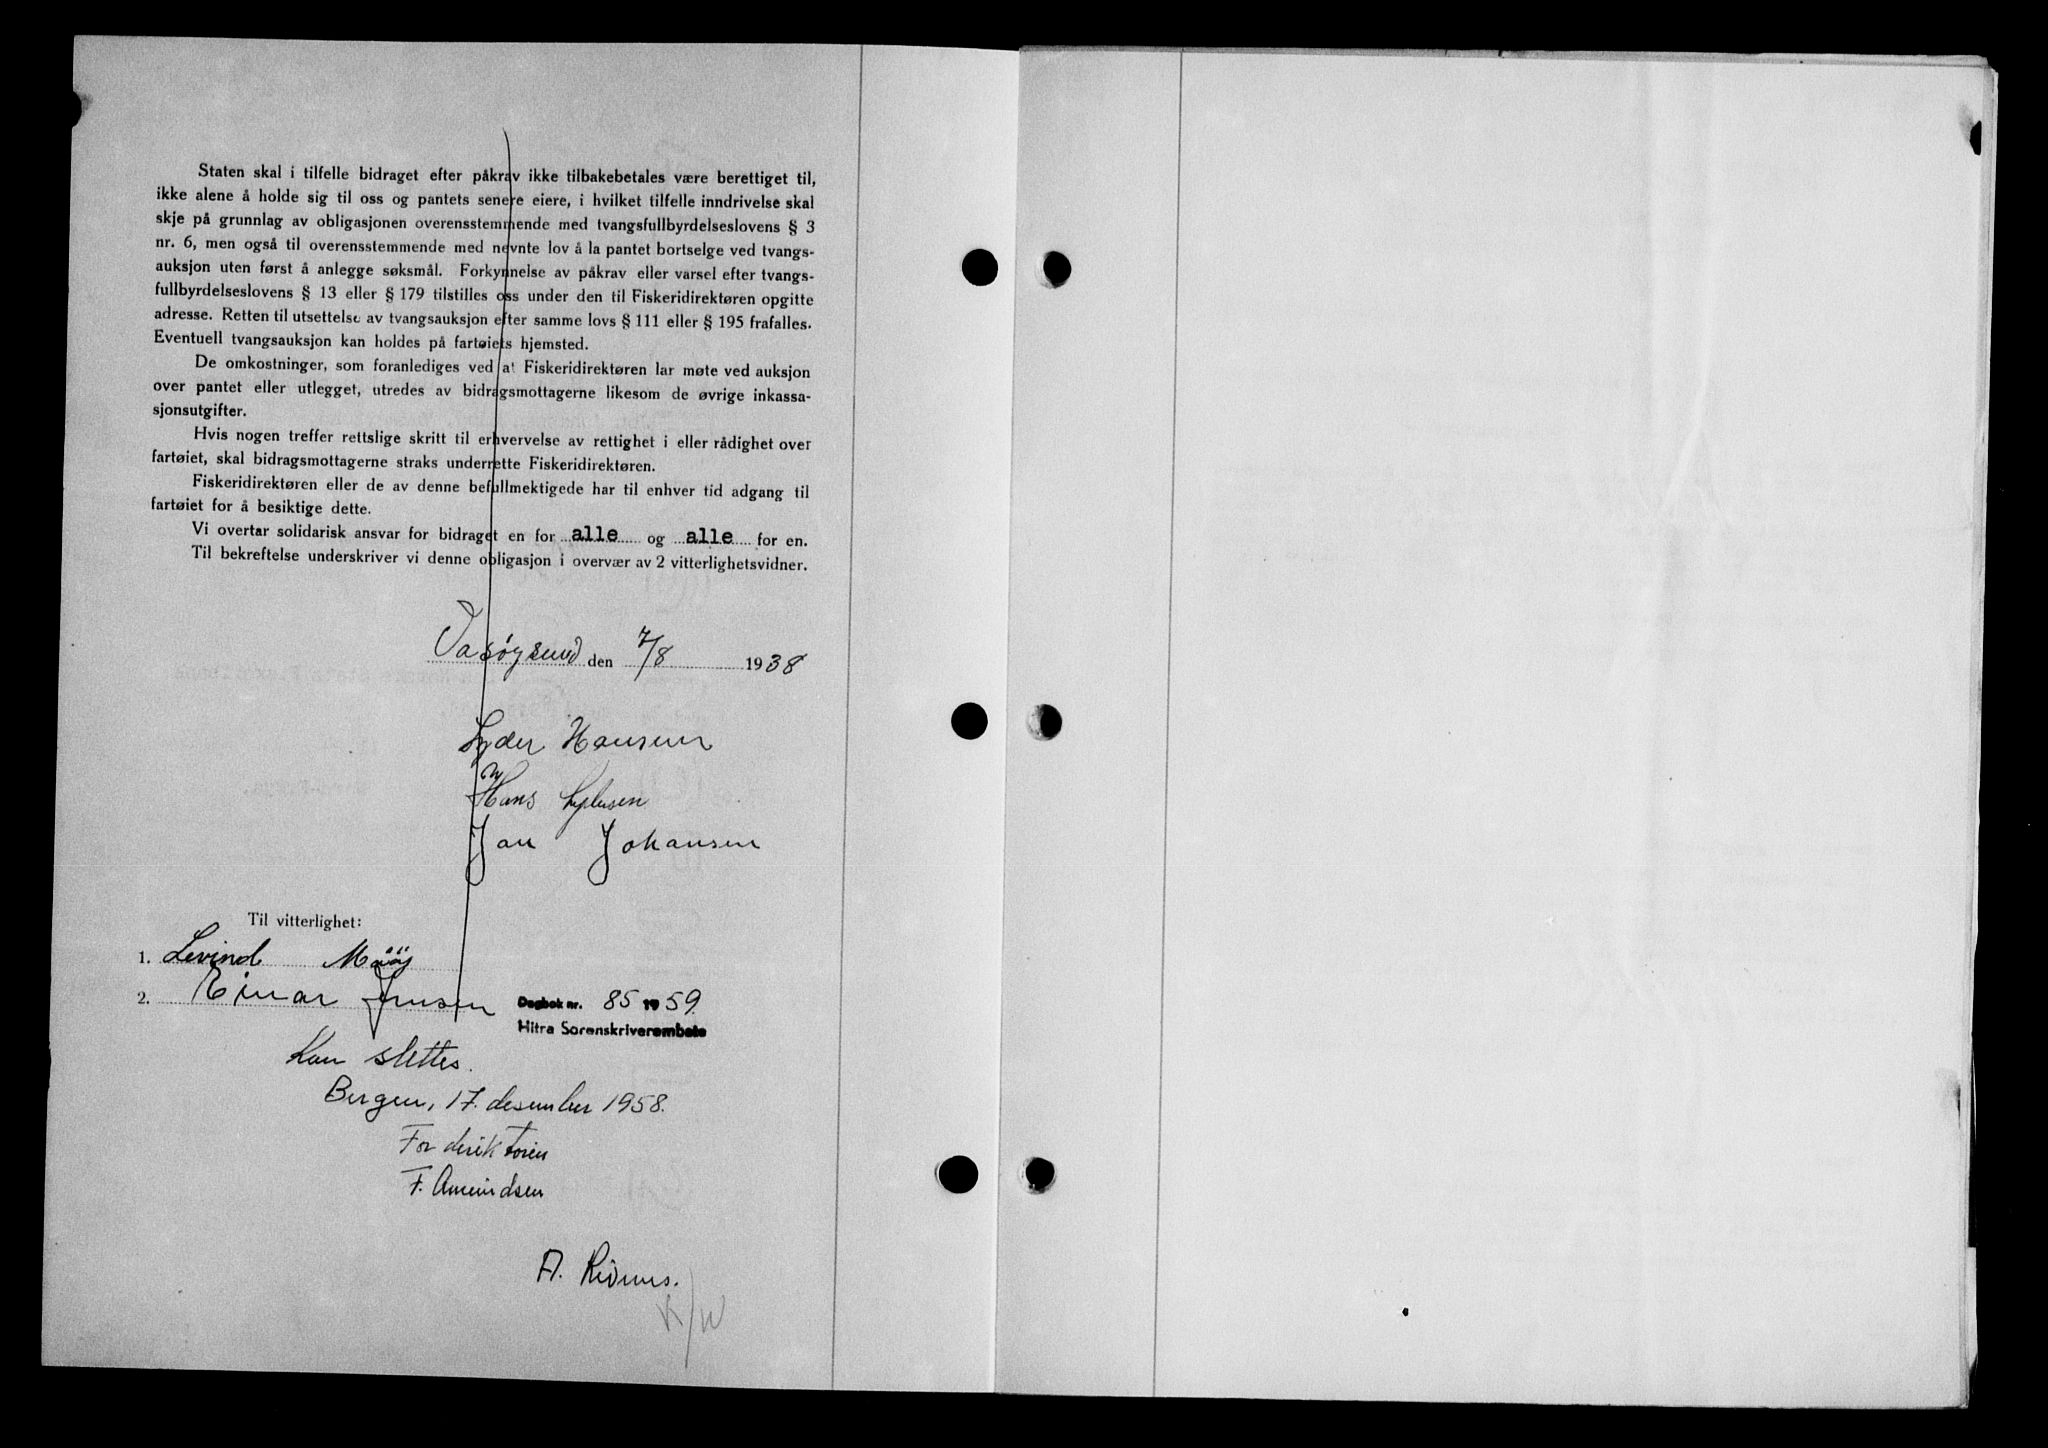 Staten skal i tilfelle bidraget efter påkrav ikke tilbakebetales være berettiget til,
ikke alene å holde sig til oss og pantets senere eiere, i hvilket tilfelle inndrivelse skal
skje på grunnlag av obligasjonen overensstemmende med tvangsfullbyrdelseslovens § 3
nr. 6, men også til overensstemmende med nevnte lov å la pantet bortselge ved tvangs-
auksjon uten først å anlegge søksmål. Forkynnelse av påkrav eller varsel efter tvangs-
fullbyrdelseslovens § 13 eller § 179 tilstilles oss under den til Fiskeridirektøren opgitte
adresse. Retten til utsettelse av tvangsauksjon efter samme lovs § 111 eller § 195 frafalles.
Eventuell tvangsauksjon kan holdes på fartøiets hjemsted.
De omkostninger, som foranlediges ved at Fiskeridirektøren lar møte ved auksjon
over pantet eller utlegget, utredes av bidragsmottagerne likesom de øvrige inkassa-
sjonsutgifter.
Hvis nogen treffer rettslige skritt til erhvervelse av rettighet i eller rådighet over
fartøiet, skal bidragsmottagerne straks underrette Fiskeridirektøren.
Fiskeridirektøren eller de av denne befullmektigede har til enhver tid adgang til
fartøiet for å besiktige dette.
Vi overtar solidarisk ansvar for bidraget en for alle og alle for en.
Til bekreftelse underskriver vi denne obligasjon i overvær av 2 vitterlighetsvidner.
Vasøysund den 7/8 1938
Lyder Hansen
Hans
Jan Johansen
Til vitterlighet:
1. Levind Måøy
2. Einar Jensen Dagbok nr. 85 1959.
Hitra Sorenskriverembete
Kan slettes.
Bergen, 17. desember 1958.
For direktøren
F. Amundsen
A.
K/W